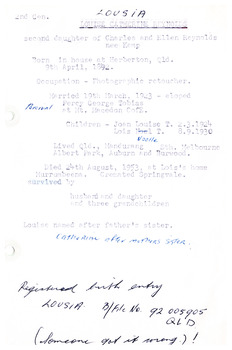 LOUSIA
2nd Gen.
LOUISE CATHERINE REYNOLDS
second daughter of Charles and Ellen Reynolds
nee Kemp
Born in house at Herberton, Qld.
9th April, 1892.
Occupation - Photographic retoucher.
Married 19th March, 1923 - eloped
Percival Percy George Tobias
at Mt. Macedon
Children - Joan Louise T. 2.3.1924
Lois T. 8.9.1930
Lived Qld., Sth. Melbourne
Albert Park, Auburn and Burwood.
Died 24th August, 1953, at Lois's home
Murrumbeena. Cremated Springvale.
survived by
husband and daughter
and three grandchildren
Louise named after father's sister.
CATHERINE AFTER MOTHERS SISTER.
Registered birth entry
LOUSIA B/File No. 92 005905
QLD
(Someone got it wrong.)!